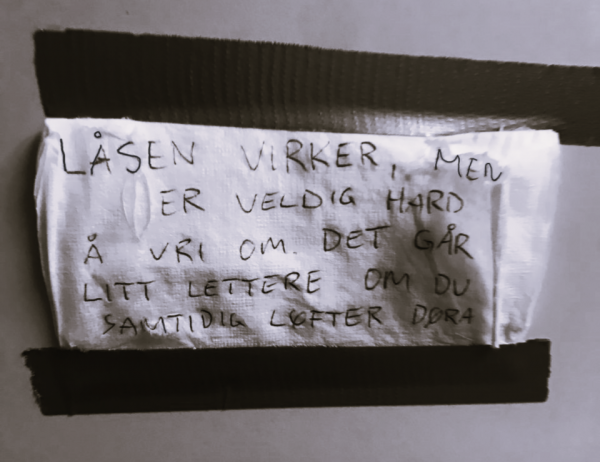 LÅSEN VIRKER, MEN
ER VELDIG HARD
Å VRI OM. DET GÅR
LITT LETTERE OM DU
SAMTIDIG LØFTER DØRA